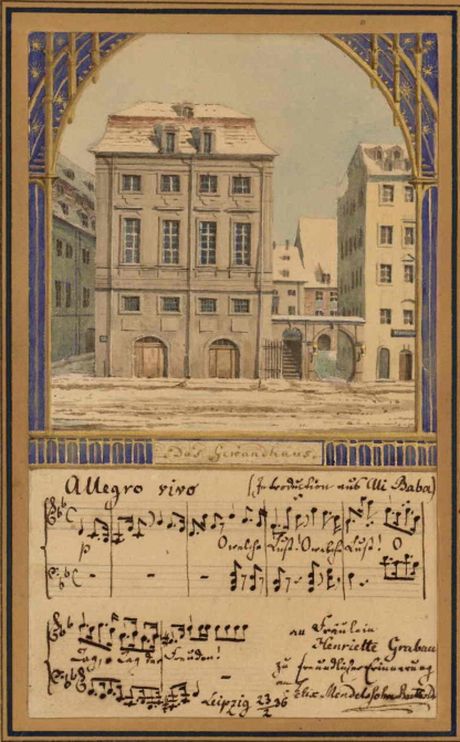 Das Gewandhaus.
Allegro vivo (Introduction aus Ali Baba)
p
O welche Lust! O welche Lust! O
Tag, o Tag der Freuden!
an Fräulein
Henriette Grabau
zu freundlicher Erinnerung
an
Leipzig 23/2 36 Felix Mendelssohn Bartholdy